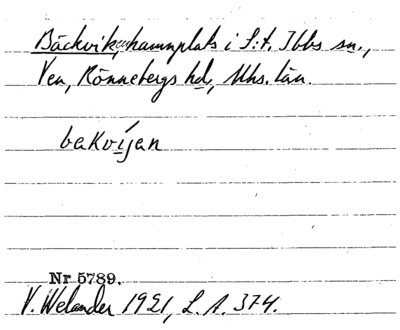 Bäckviken, hamnplats i S:t. Ibbs sn.,
Ven, Rönnebergs hd, Mhs. län.
bakvíjan
Nr 5789.
V. Welander 1921, L. A. 374.